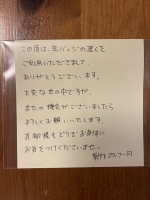 この度は、缶バッジの達人を
ご利用いただきまして、
ありがとうございます。
大変な世の中ですが、
またの機会がございましたら
よろしくお願いいたします。
皆様もどうぞお身体に
お気をつけくださいませ。
製作スタッフ一同